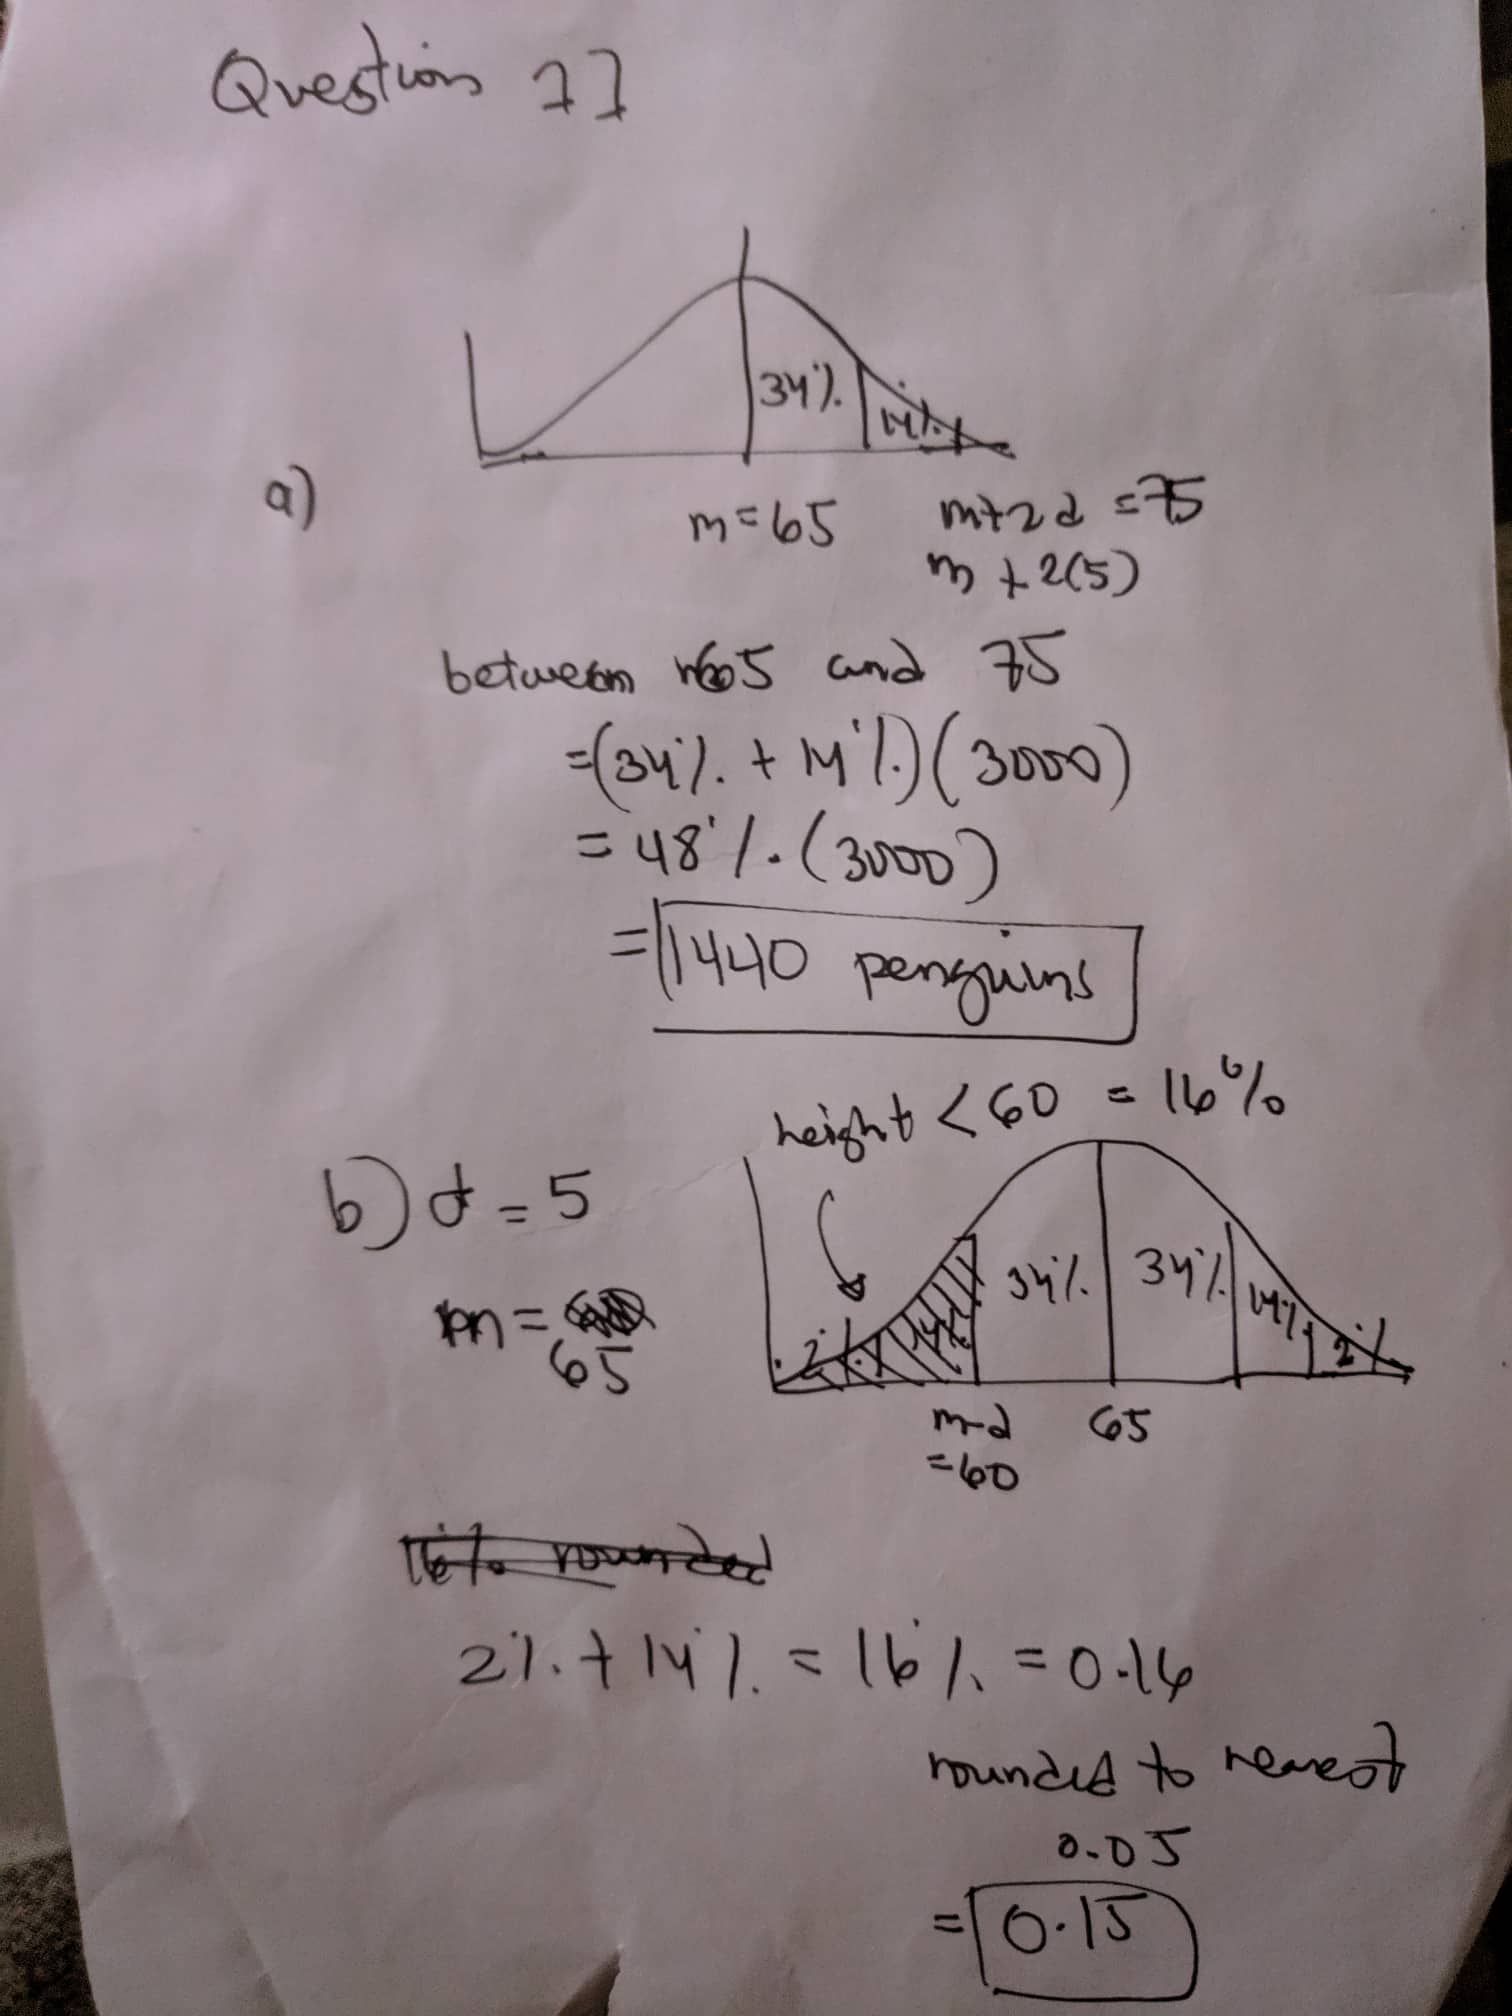 Question 77
34%. 14%.
a)
m=65 m+2d =75
m +2(5)
between 65 and 75
=(34%. + 14%.)(3000)
= 48%.(3000)
= 1440 penguins
height <60 = 16%
b) d = 5
m =
65
2%. 14%. 34%. 34%. 14%. 2%
m-d 65
=60
16% rounded
2%.+14%. = 16%. = 0.16
rounded to nearest
0.05
= 0.15